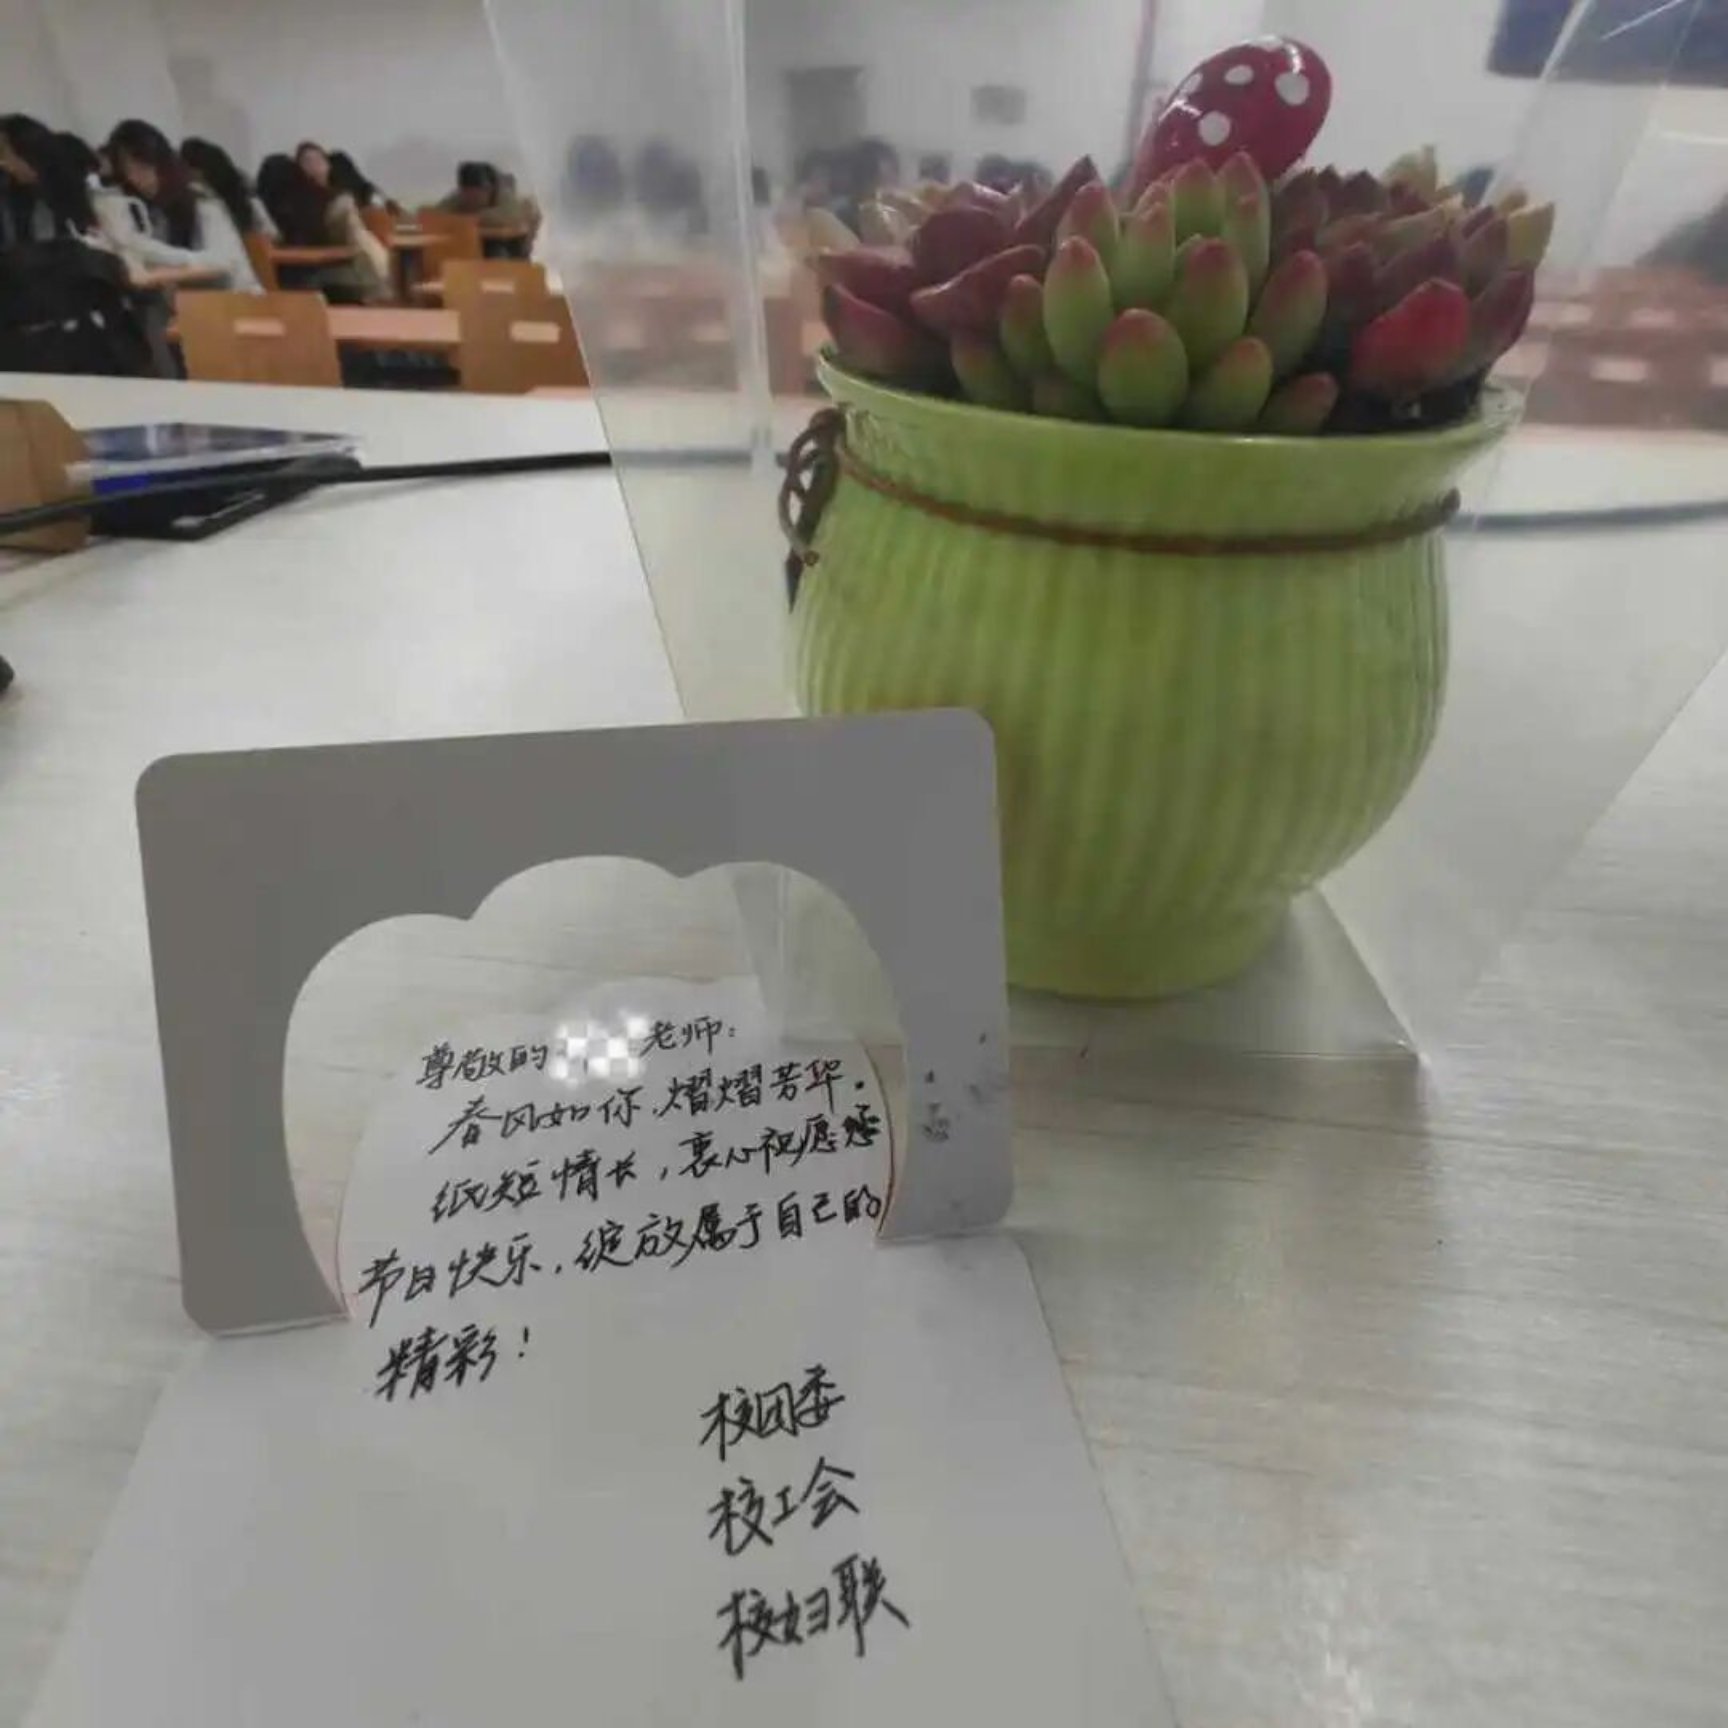 尊敬的 老师:
春风如你,熠熠芳华。
纸短情长,衷心祝愿您
节日快乐,绽放属于自己的
精彩!
校团委
校工会
校妇联